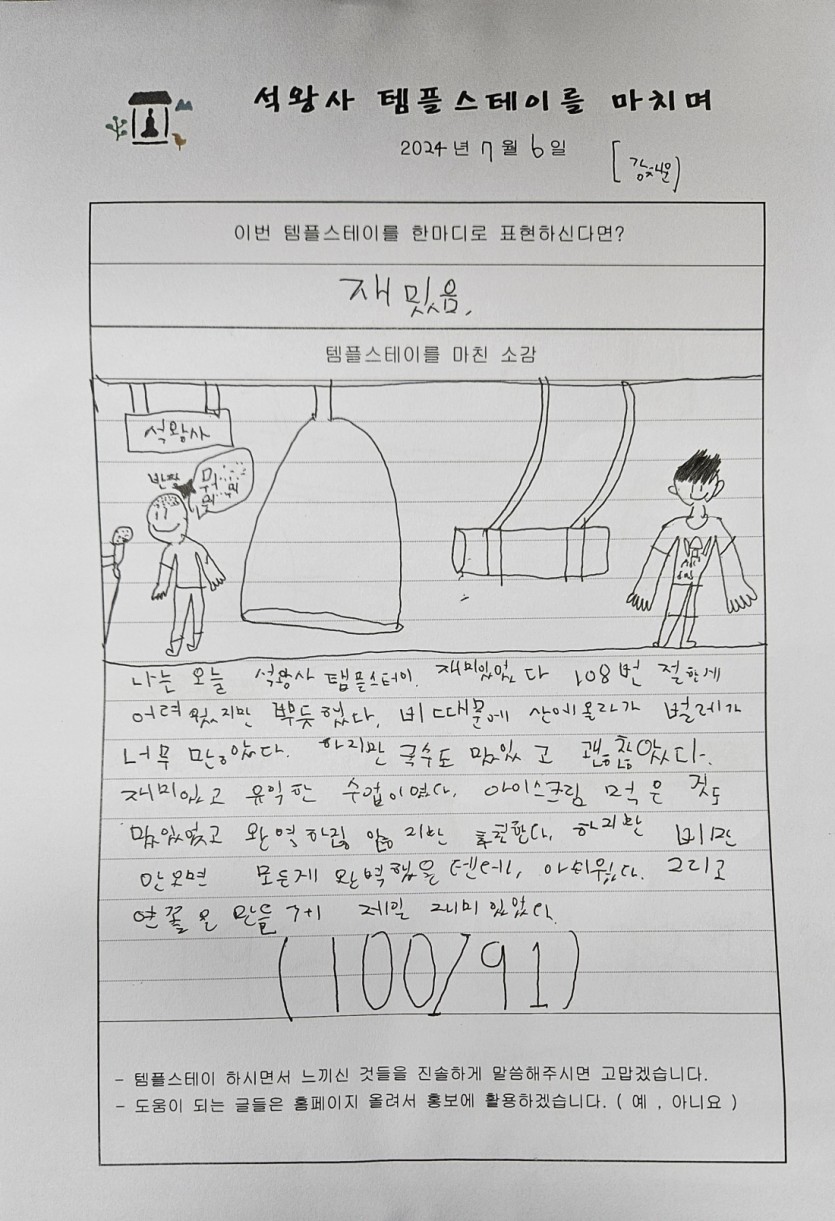 석왕사 템플스테이를 마치며
2024년 7월 6일
이번 템플스테이를 한마디로 표현하신다면?
재밌음.
템플스테이를 마친 소감
석왕사
반짝
나는 오늘 석왕사 탬플스테이. 재미있었다 108번 절한게
어려웠지만 뿌듯했다. 비 때문에 산에올라가 벌레가
너무 많았다. 하지만 국수도 맛있고 괜찮았다.
재미있고 유익한 수업이였다. 아이스크림 먹은 것도
맛있었고 하지만 비만
안오면 모든게 완벽했을 텐데, 아쉬웠다. 그리고
연꽃을 만들 제일 재미있었다.
(100/91)
- 템플스테이 하시면서 느끼신 것들을 진솔하게 말씀해주시면 고맙겠습니다.
- 도움이 되는 글들은 홈페이지 올려서 홍보에 활용하겠습니다. ( 예 , 아니요 )